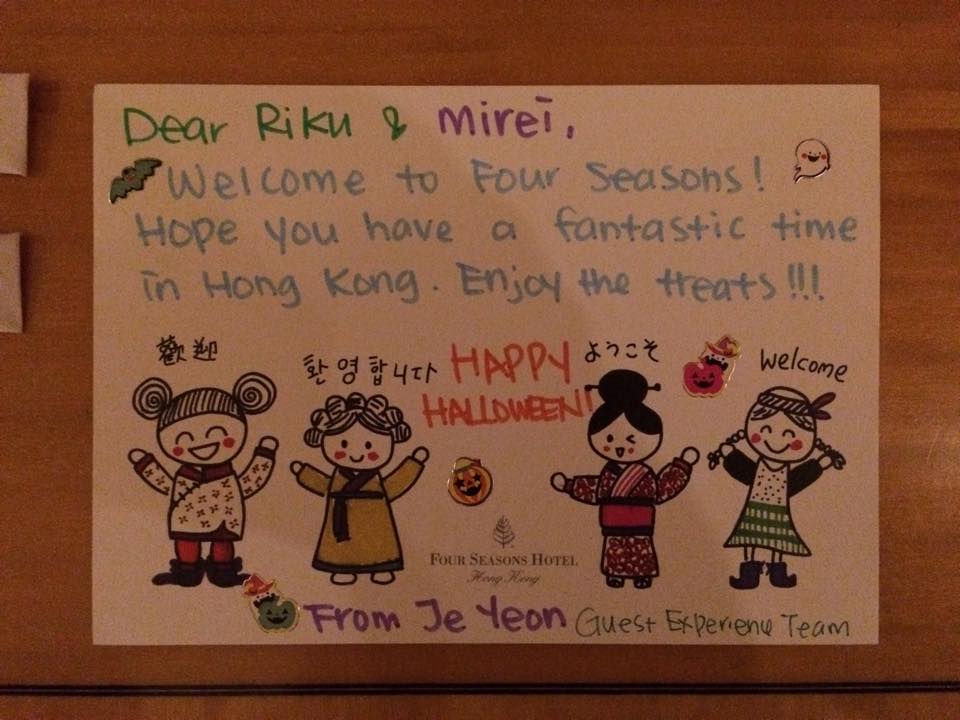 Dear Riku & Mirei,
Welcome to Four Seasons!
Hope you have a fantastic time
in Hong Kong. Enjoy the treats!!!
歡迎
환영합니다
HAPPY
HALLOWEEN!
ようこそ
Welcome
FOUR SEASONS HOTEL
Hong Kong
From Je Yeon Guest Experience Team